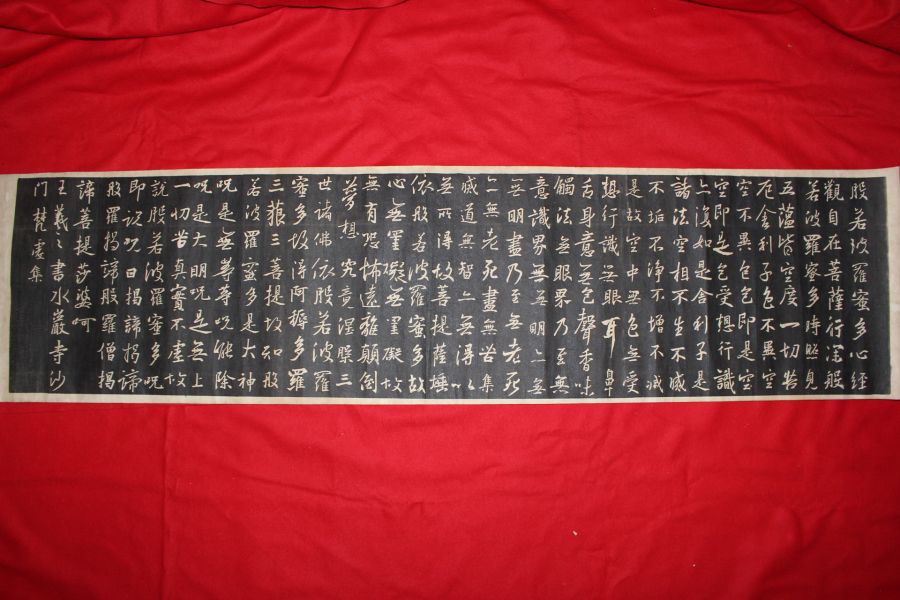 般若波羅蜜多心經
觀自在菩薩行深般
若波羅蜜多時照見
五蘊皆空度一切苦
厄舍利子色不異空
空不異色色即是空
空即是色受想行識
亦復如是舍利子是
諸法空相不生不滅
不垢不淨不增不減
是故空中無色無受
想行識無眼耳鼻
舌身意無色聲香味
觸法無眼界乃至無
意識界無無明亦無
無明盡乃至無老死
亦無老死盡無苦集
滅道無智亦無得以
無所得故菩提薩埵
依般若波羅蜜多故
心無罣礙無罣礙故
無有恐怖遠離顛倒
夢想究竟涅槃三
世諸佛依般若波羅
蜜多故得阿耨多羅
三藐三菩提故知般
若波羅蜜多是大神
呪是無等等呪能除
呪是大明呪是無上
一切苦真實不虛故
說般若波羅蜜多呪
即說呪曰揭諦揭諦
般羅揭諦般羅僧揭
諦菩提莎婆呵
王羲之書水巖寺沙
門梵集